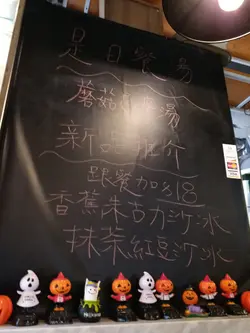 是日餐湯
蘑菇 湯
新品推介
跟餐加$18
香蕉朱古力沙冰
抹茶紅豆沙冰